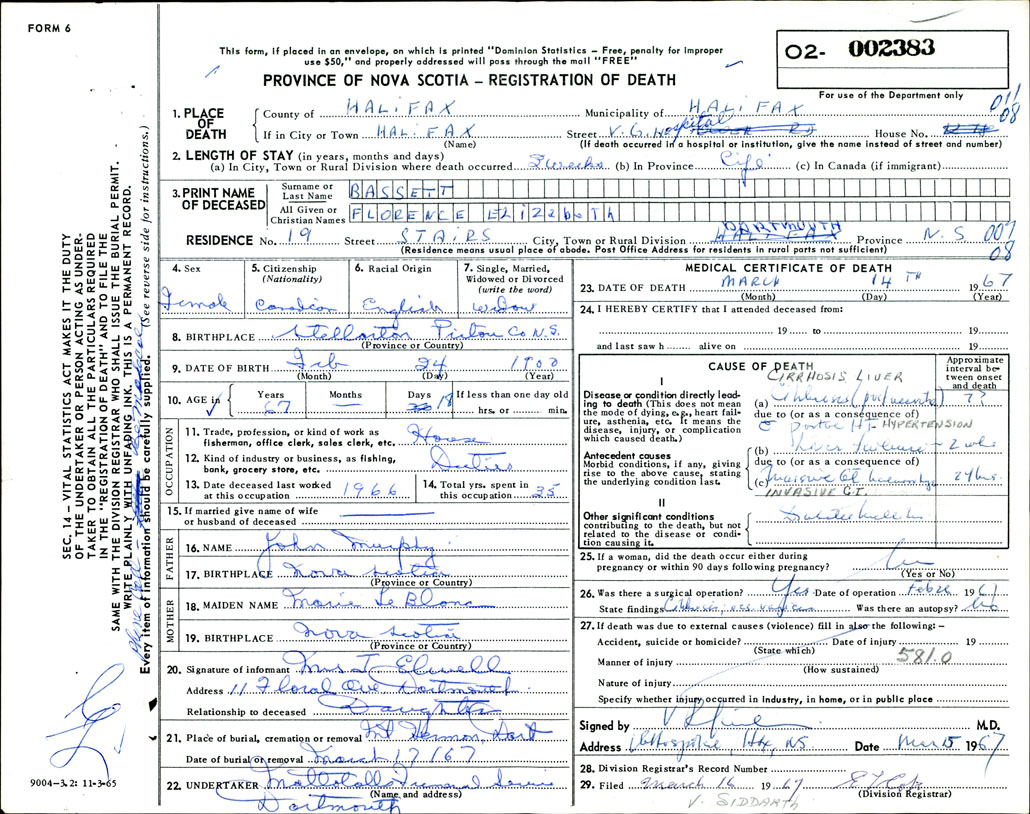 FORM 6
This form, if placed in an envelope, on which is printed "Dominion Statistics – Free, penalty for improper
use $50," and properly addressed will pass through the mail "FREE"
PROVINCE OF NOVA SCOTIA – REGISTRATION OF DEATH
02- 002383
For use of the Department only
011
08
1. PLACE OF DEATH
County of HALIFAX Municipality of HALIFAX
If in City or Town HALIFAX Street V.G. Hospital House No.
(Name) (If death occurred in a hospital or institution, give the name instead of street and number)
2. LENGTH OF STAY (in years, months and days)
(a) In City, Town or Rural Division where death occurred 2 weeks (b) In Province Life (c) In Canada (if immigrant)
3. PRINT NAME OF DECEASED
Surname or Last Name BASSETT
All Given or Christian Names FLORENCE ELIZABETH
RESIDENCE No. 19 Street STAIRS City, Town or Rural Division DARTMOUTH Province N.S. 007
08
(Residence means usual place of abode. Post Office Address for residents in rural parts not sufficient)
4. Sex 5. Citizenship (Nationality) 6. Racial Origin 7. Single, Married, Widowed or Divorced (write the word)
Female Canadian English widow
8. BIRTHPLACE Stellarton Pictou Co N.S.
(Province or Country)
9. DATE OF BIRTH Feb 24 1900
(Month) (Day) (Year)
10. AGE in Years Months Days If less than one day old
67 18 hrs. or min.
OCCUPATION
11. Trade, profession, or kind of work as fisherman, office clerk, sales clerk, etc. House
12. Kind of industry or business, as fishing, bank, grocery store, etc. Duties
13. Date deceased last worked at this occupation 1966 14. Total yrs. spent in this occupation 35
15. If married give name of wife or husband of deceased
FATHER
16. NAME John Murphy
17. BIRTHPLACE Nova Scotia
(Province or Country)
MOTHER
18. MAIDEN NAME Marie LeBlanc
19. BIRTHPLACE Nova Scotia
(Province or Country)
20. Signature of informant Mrs J. Elwell
Address 11 Floral Ave Dartmouth
Relationship to deceased Daughter
21. Place of burial, cremation or removal Mt Hermon, Dart
Date of burial or removal March 17/67
22. UNDERTAKER Mattatall Funeral Service
(Name and address)
Dartmouth
MEDICAL CERTIFICATE OF DEATH
23. DATE OF DEATH MARCH 14TH 1967
(Month) (Day) (Year)
24. I HEREBY CERTIFY that I attended deceased from:
19 to 19
and last saw h alive on 19
CAUSE OF DEATH
Approximate interval between onset and death
I
CIRRHOSIS LIVER
Disease or condition directly leading to death (This does not mean the mode of dying, e.g., heart failure, asthenia, etc. It means the disease, injury, or complication which caused death.)
(a)
due to (or as a consequence of)
HYPERTENSION
Antecedent causes
Morbid conditions, if any, giving rise to the above cause, stating the underlying condition last.
(b)
due to (or as a consequence of)
(c) Massive GI
MASSIVE G.I.
II
Other significant conditions contributing to the death, but not related to the disease or condition causing it.
25. If a woman, did the death occur either during pregnancy or within 90 days following pregnancy?
(Yes or No)
26. Was there a surgical operation? Yes Date of operation Feb 28 1967
State findings Was there an autopsy? No
27. If death was due to external causes (violence) fill in also the following: –
Accident, suicide or homicide? Date of injury 19
(State which)
Manner of injury 581.0
(How sustained)
Nature of injury
Specify whether injury occurred in industry, in home, or in public place
Signed by M.D.
Address VG Hospital, Hfx, NS Date Mar 15 1967
28. Division Registrar's Record Number
29. Filed March 16 1967
(Division Registrar)
V. SIDDARTH
SEC. 14 – VITAL STATISTICS ACT MAKES IT THE DUTY
OF THE UNDERTAKER OR PERSON ACTING AS UNDER-
TAKER TO OBTAIN ALL THE PARTICULARS REQUIRED
IN THE "REGISTRATION OF DEATH" AND TO FILE THE
SAME WITH THE DIVISION REGISTRAR WHO SHALL ISSUE THE BURIAL PERMIT.
WRITE PLAINLY WITH UNFADING INK. THIS IS A PERMANENT RECORD.
Every item of information should be carefully supplied. (See reverse side for instructions.)
9004–3.2: 11-3-65